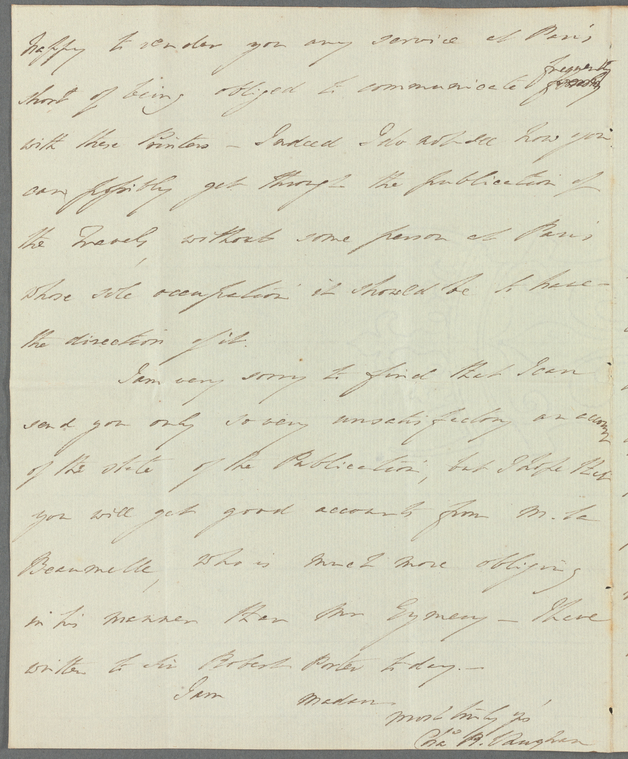 happy to render you any service at Paris
short of being obliged to communicate frequently
with these Printers – Indeed I do not see how you
can possibly get through the publication of
the Travels, without some person at Paris
whose sole occupation it should be to have
the direction of it.
I am very sorry to find that I can
send you only so very unsatisfactory an account
of the state of the Publication, but I hope that
you will get good accounts from M. la
Beaumelle, who is much more obliging
in his manner than Mr Eymery – I have
written to Sir Robert Porter to day. –
I am Madam
most truly yrs
Chas R. Vaughan